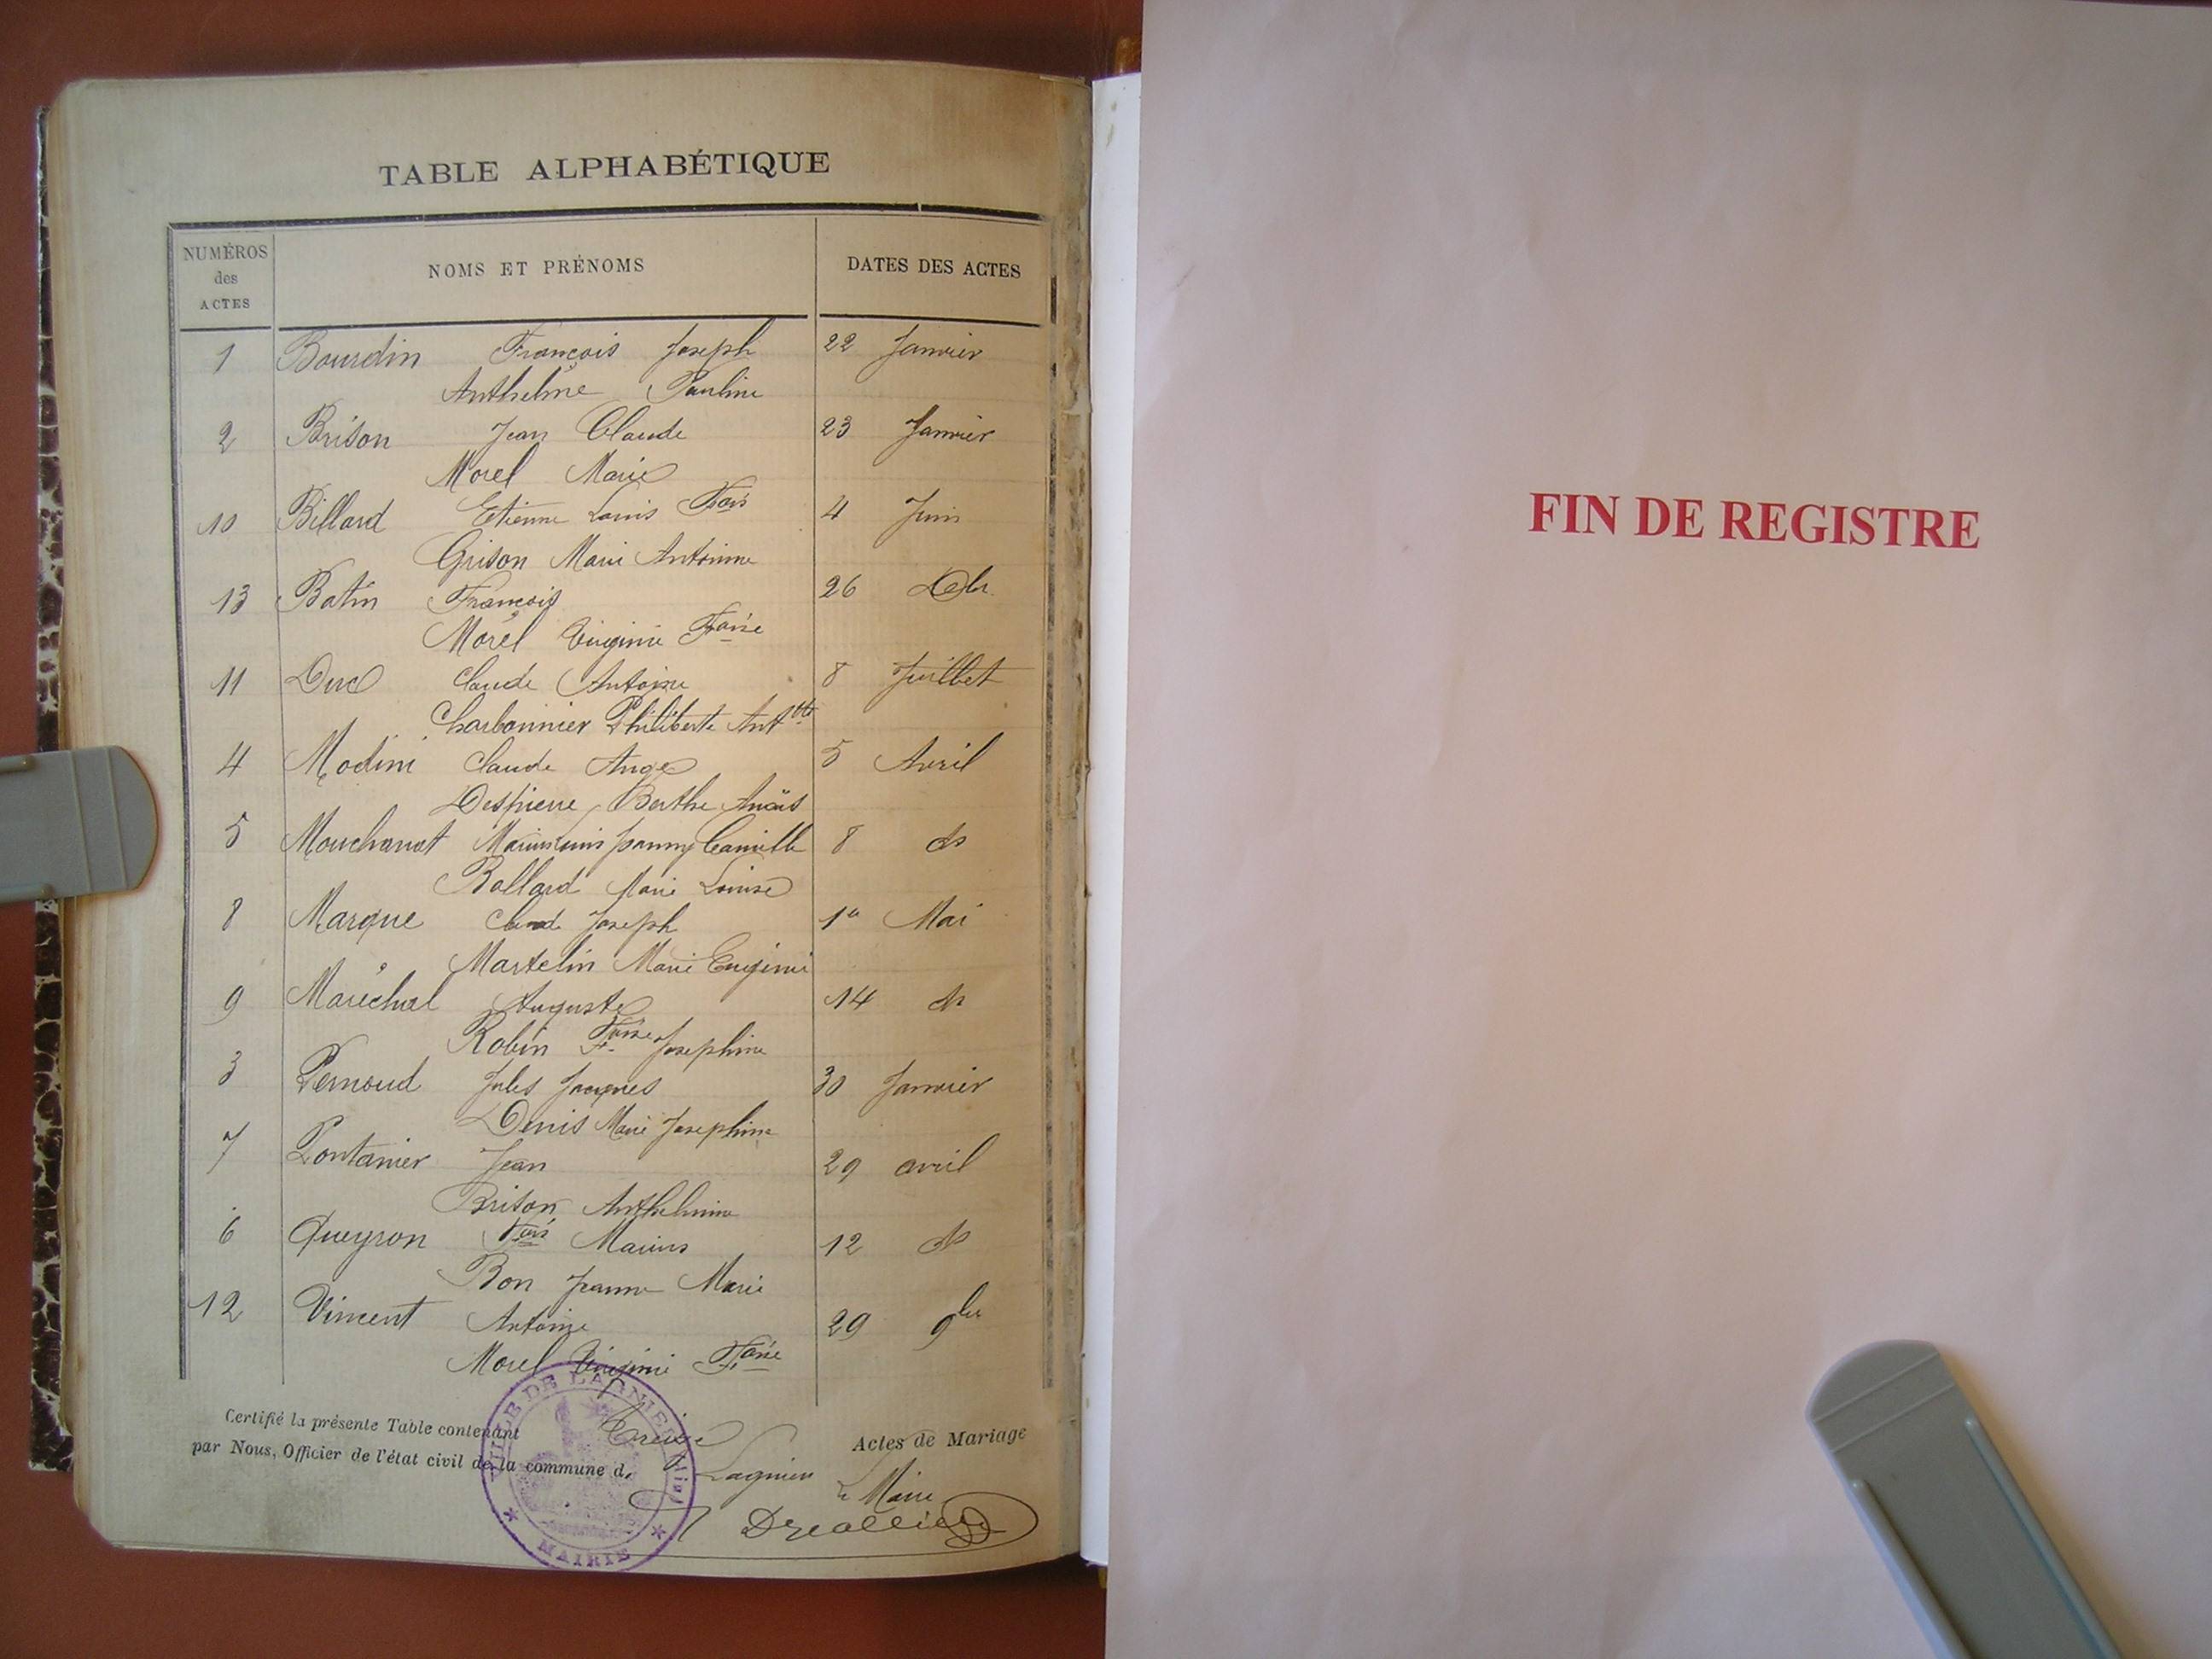 TABLE ALPHABÉTIQUE
NUMÉROS des ACTES NOMS ET PRÉNOMS DATES DES ACTES
1 Bourdin François Joseph 22 Janvier
Anthelme Pauline
2 Brison Jean Claude 23 Janvier
Morel Marie
10 Billard Etienne Louis Fçois 4 Juin
Grison Marie Antoinne
13 Batin François 26
Morel Virginie Fçoise
11 Duc Claude Antoine 8 Juillet
Charbonnier Philiberte Anttte
4 Modini Claude Ange 5 Avril
Despierre Berthe Anaïs
5 Mouchanat Camille 8 do
Ballard Marie Louise
8 Marque Claude Joseph 1er Mai
Martelin Marie Eugénie
9 Maréchal Auguste 14 do
Robin Fçoise Josephine
3 Pernoud Jules Jacques 30 Janvier
Denis Marie Josephine
7 Pontanier Jean 29 avril
Brison Anthelmine
6 Queyron Fçois Marius 12 do
Bon Jeanne Marie
12 Vincent Antoine 29 9bre
Morel Virginie Fçoise
Certifié la présente Table contenant Treize Actes de Mariage
par Nous, Officier de l'état civil de la commune d. Lagnieu
Le Maire
VILLE DE LAGNIEU (Ain)
* MAIRIE *
FIN DE REGISTRE